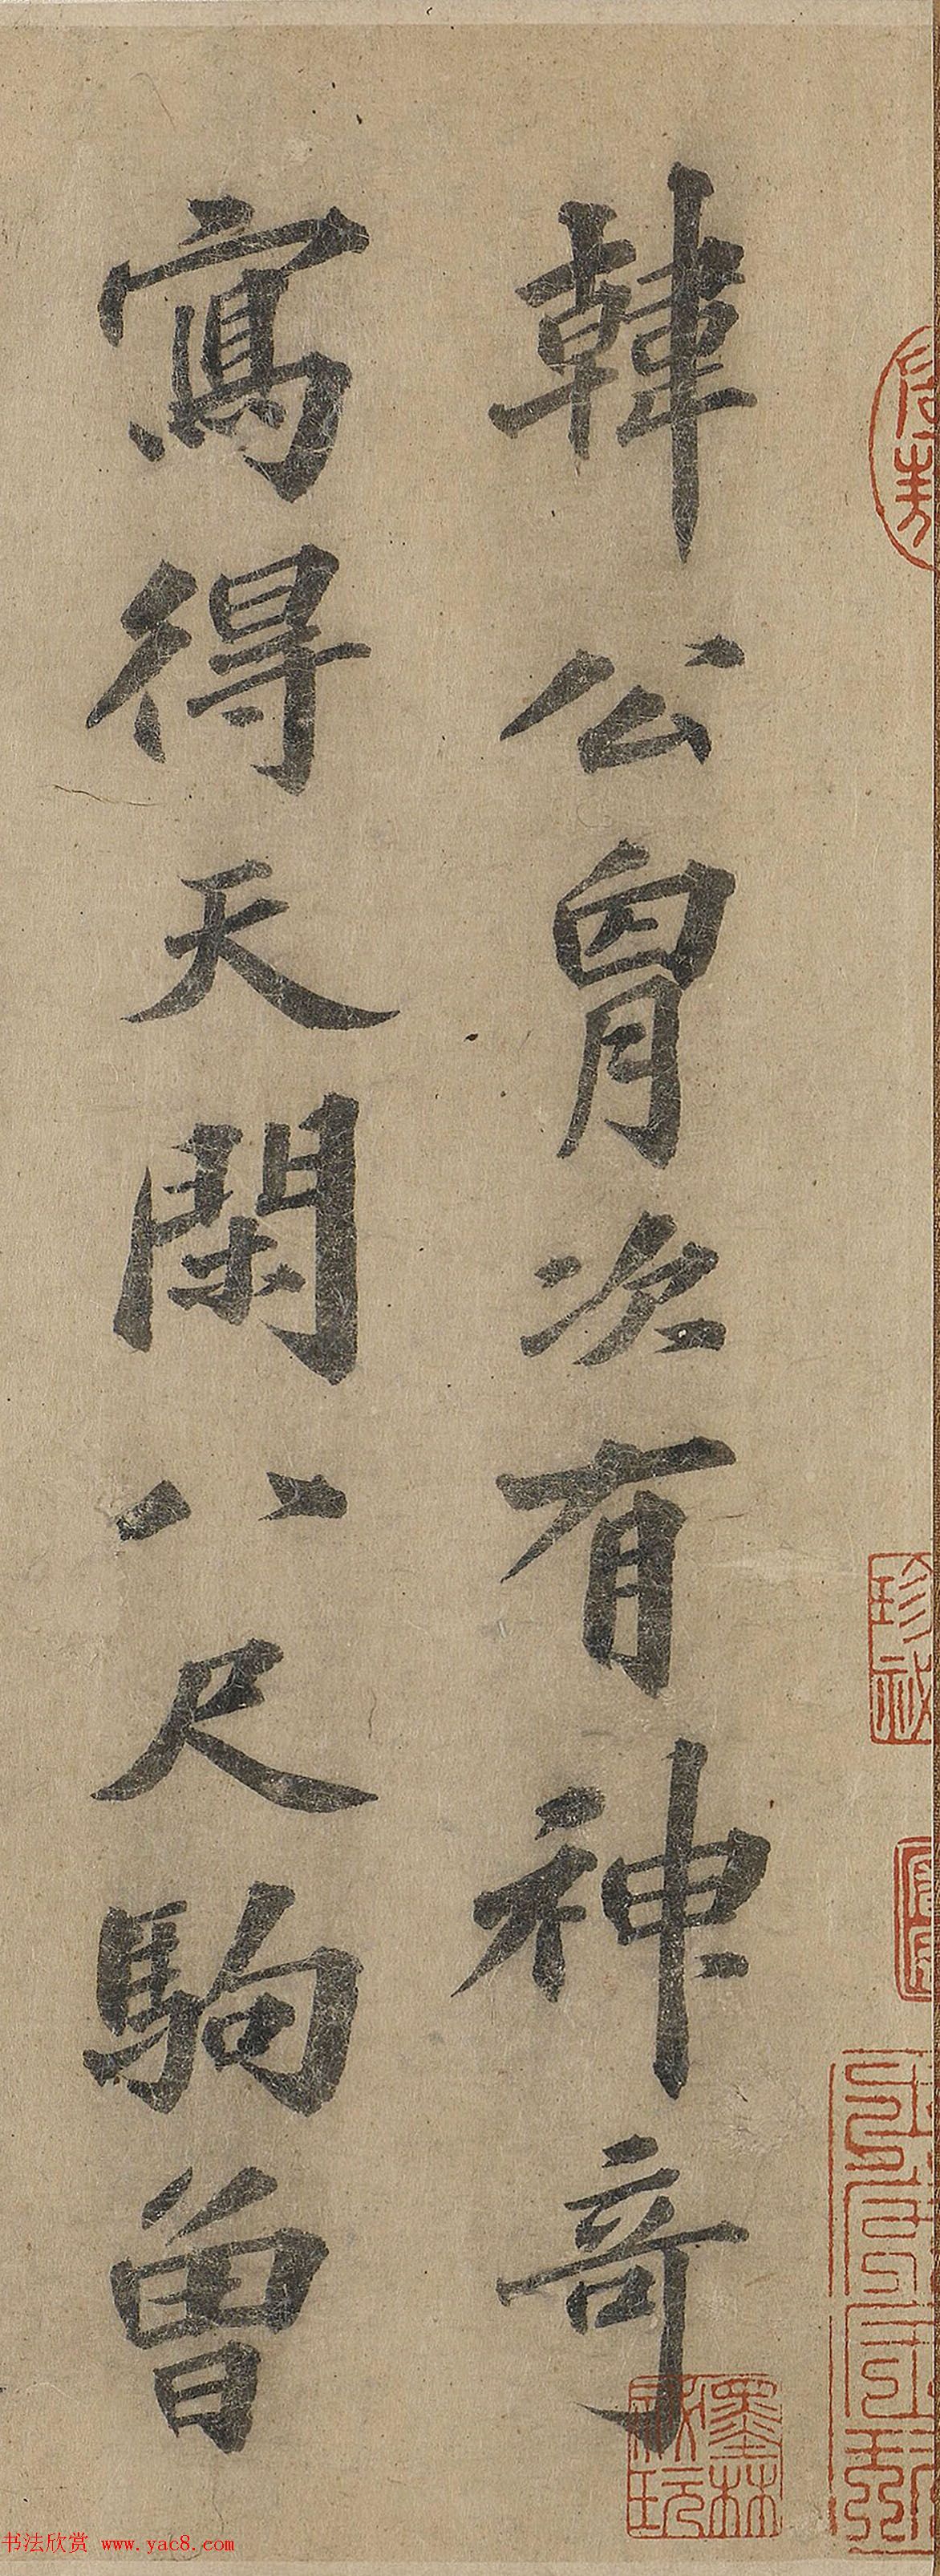 韓公胷次有神奇
寫得天閑八尺駒曾
墨林秘玩
珍祕
书法欣赏 www.yac8.com